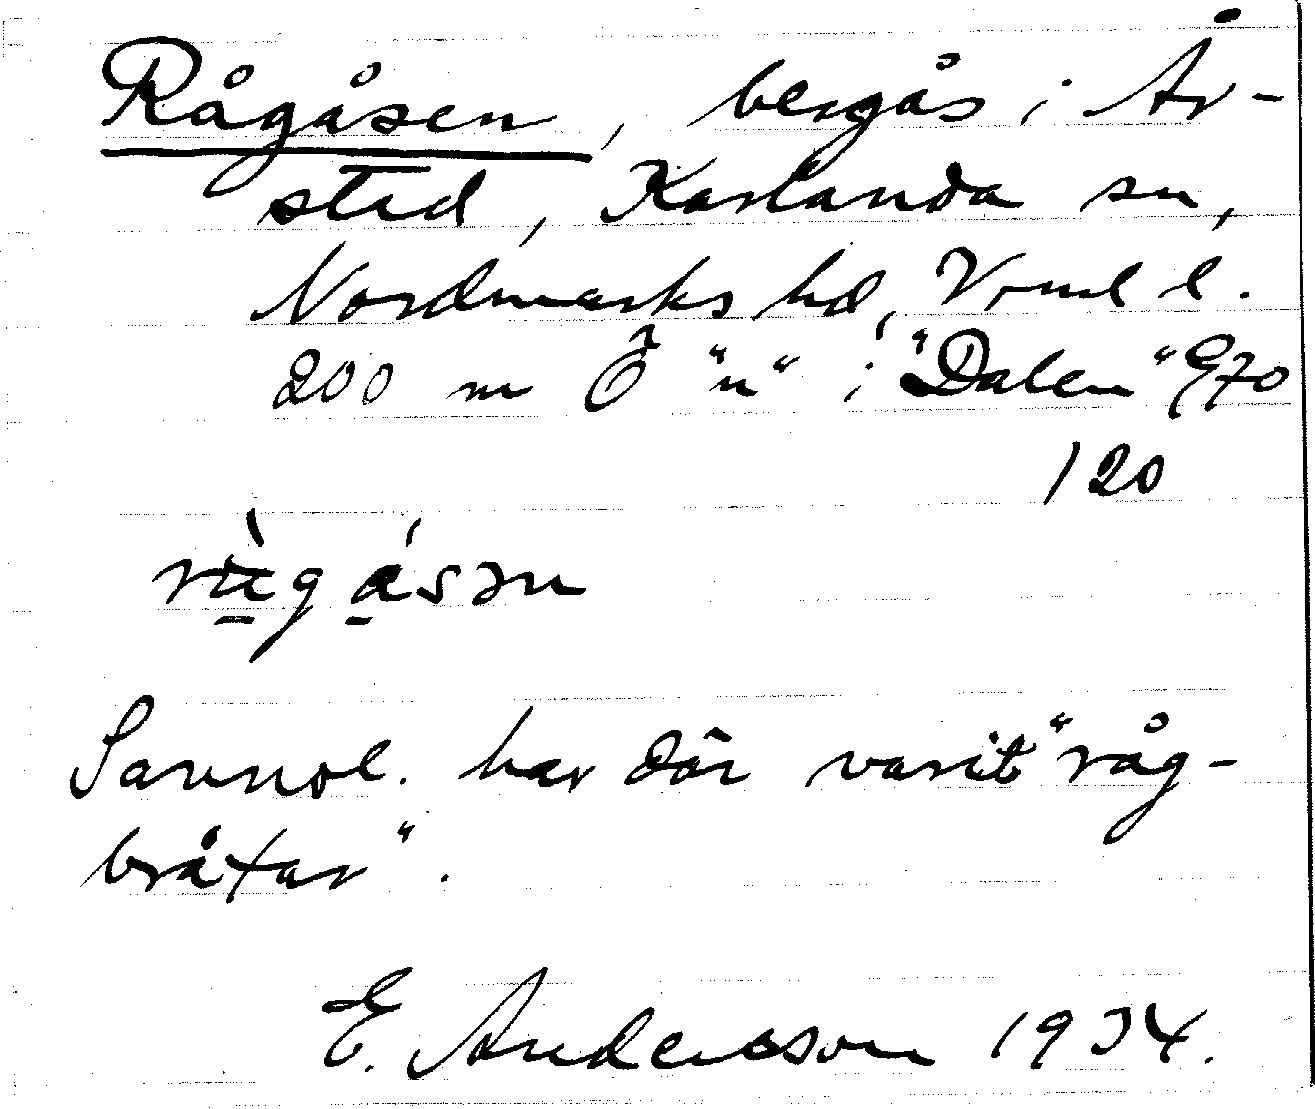 Rågåsen, bergås i År-
stad, Karlanda sn,
Nordmarks hd, Vrml l.
200 m Ö "n" i "Dalen" 970
120
rùgásən
Sannol. har där varit "råg-
bråtar".
E. Andersson 1934.